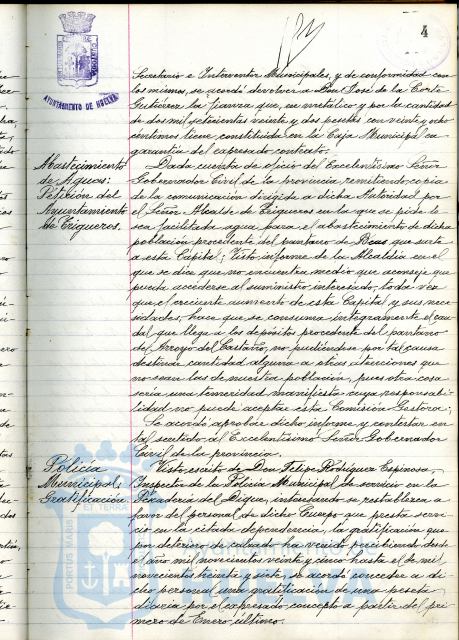 4
AYUNTAMIENTO DE HUELVA
Secretario e Interventor Municipales, y de conformidad con
los mismos, se acordó devolver a Don José de la Corte
Gutiérrez la fianza que, en metálico y por la cantidad
de dos mil setecientas veinte y dos pesetas con veinte y ocho
céntimos tiene constituida en la Caja Municipal en
garantía del expresado contrato.
Abastecimiento
de Aguas:
Petición del
Ayuntamiento
de Trigueros.
Dada cuenta de oficio del Excelentísimo Señor
Gobernador Civil de la provincia remitiendo copia
de la comunicación dirigida a dicha Autoridad por
el Señor Alcalde de Trigueros en la que se pide le
sea facilitada agua para el abastecimiento de dicha
población procedente del pantano de Beas que surte
a esta Capital; Visto informe de la Alcaldía en el
que se dice que no encuentra medio que aconseje que
pueda accederse al suministro interesado, toda vez
que el creciente aumento de esta Capital y sus nece-
sidades, hace que se consuma íntegramente el cau-
dal que llega a los depósitos procedente del pantano
del Arroyo del Castaño, no pudiéndose por tal causa
destinar cantidad alguna a otras atenciones que
no sean las de nuestra población, pues otra cosa
sería una temeridad manifiesta cuya responsabi-
lidad no puede aceptar esta Comisión Gestora;
Se acordó aprobar dicho informe y contestar en
tal sentido al Excelentísimo Señor Gobernador
Civil de la provincia.
Policía
Municipal:
Gratificación
Visto escrito de Don Felipe Rodríguez Espinosa,
Inspector de la Policía Municipal de servicio en la
Pescadería del Dique, interesando se restablezca a
favor del personal de dicho Cuerpo que presta servi-
cio en la citada dependencia, la gratificación que
por deterioro de calzado ha venido percibiendo desde
el año mil novecientos veinte y cinco hasta el de mil
novecientos treinta y siete, se acordó conceder a di-
cho personal una gratificación de una peseta
diaria por el expresado concepto a partir del pri-
mero de Enero último.
PORTUS MARIS
ET TERRA
Ayuntamiento de
HUELVA